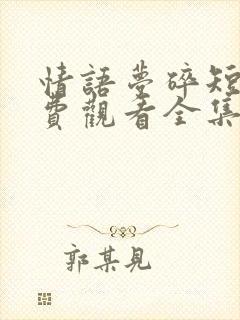 情語夢碎短
費觀看全集
郭某見